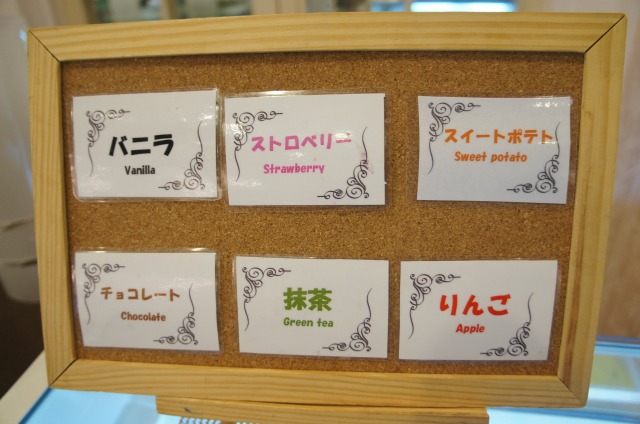 バニラ
Vanilla
ストロベリー
Strawberry
スイートポテト
Sweet potato
チョコレート
Chocolate
抹茶
Green tea
りんご
Apple